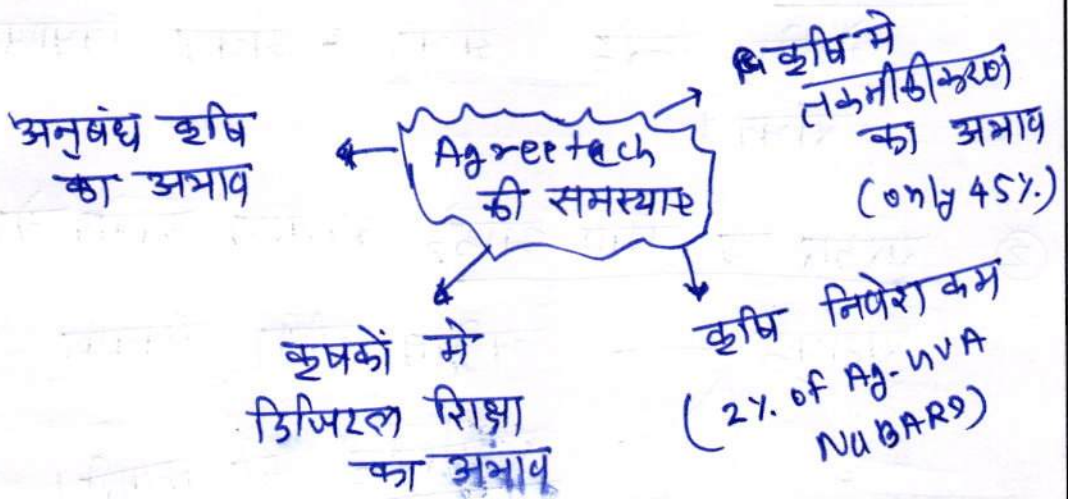 अनुबंध कृषि
का अभाव
Agreetech
की समस्याए
कृषि मे
तकनीकीकरण
का अभाव
(only 45%.)
कृषकों मे
डिजिटल शिक्षा
का अभाव
कृषि निवेश कम
(2%. of Ag-UVA
NUBARD)